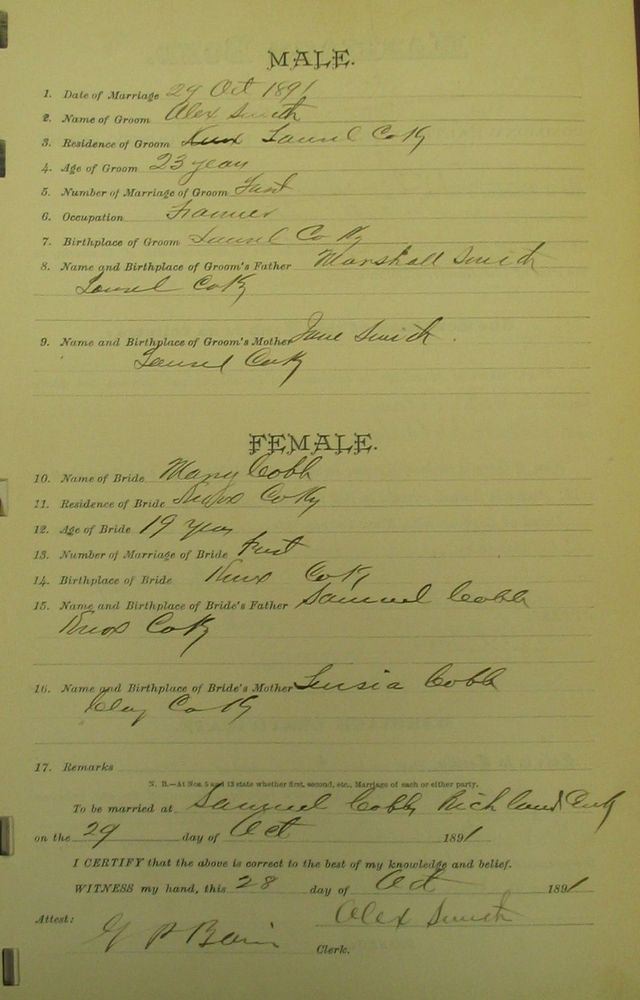 MALE.
1. Date of Marriage 29 Oct 1891
2. Name of Groom Alex Smith
3. Residence of Groom Knox Laurel Co Ky
4. Age of Groom 23 years
5. Number of Marriage of Groom First
6. Occupation Farmer
7. Birthplace of Groom Laurel Co Ky
8. Name and Birthplace of Groom's Father Marshall Smith
Laurel Co Ky
9. Name and Birthplace of Groom's Mother Jane Smith
Laurel Co Ky
FEMALE.
10. Name of Bride Mary Cobb
11. Residence of Bride Knox Co Ky
12. Age of Bride 19 years
13. Number of Marriage of Bride First
14. Birthplace of Bride Knox Co Ky
15. Name and Birthplace of Bride's Father Samuel Cobb
Knox Co Ky
16. Name and Birthplace of Bride's Mother Cobb
Clay Co Ky
17. Remarks
N. B.—At Nos. 5 and 13 state whether first, second, etc., Marriage of each or either party.
To be married at Samuel Cobbs Richland
on the 29 day of Oct 1891
I CERTIFY that the above is correct to the best of my knowledge and belief.
WITNESS my hand, this 28 day of Oct 1891
Alex Smith
Attest:
G P Bain Clerk.